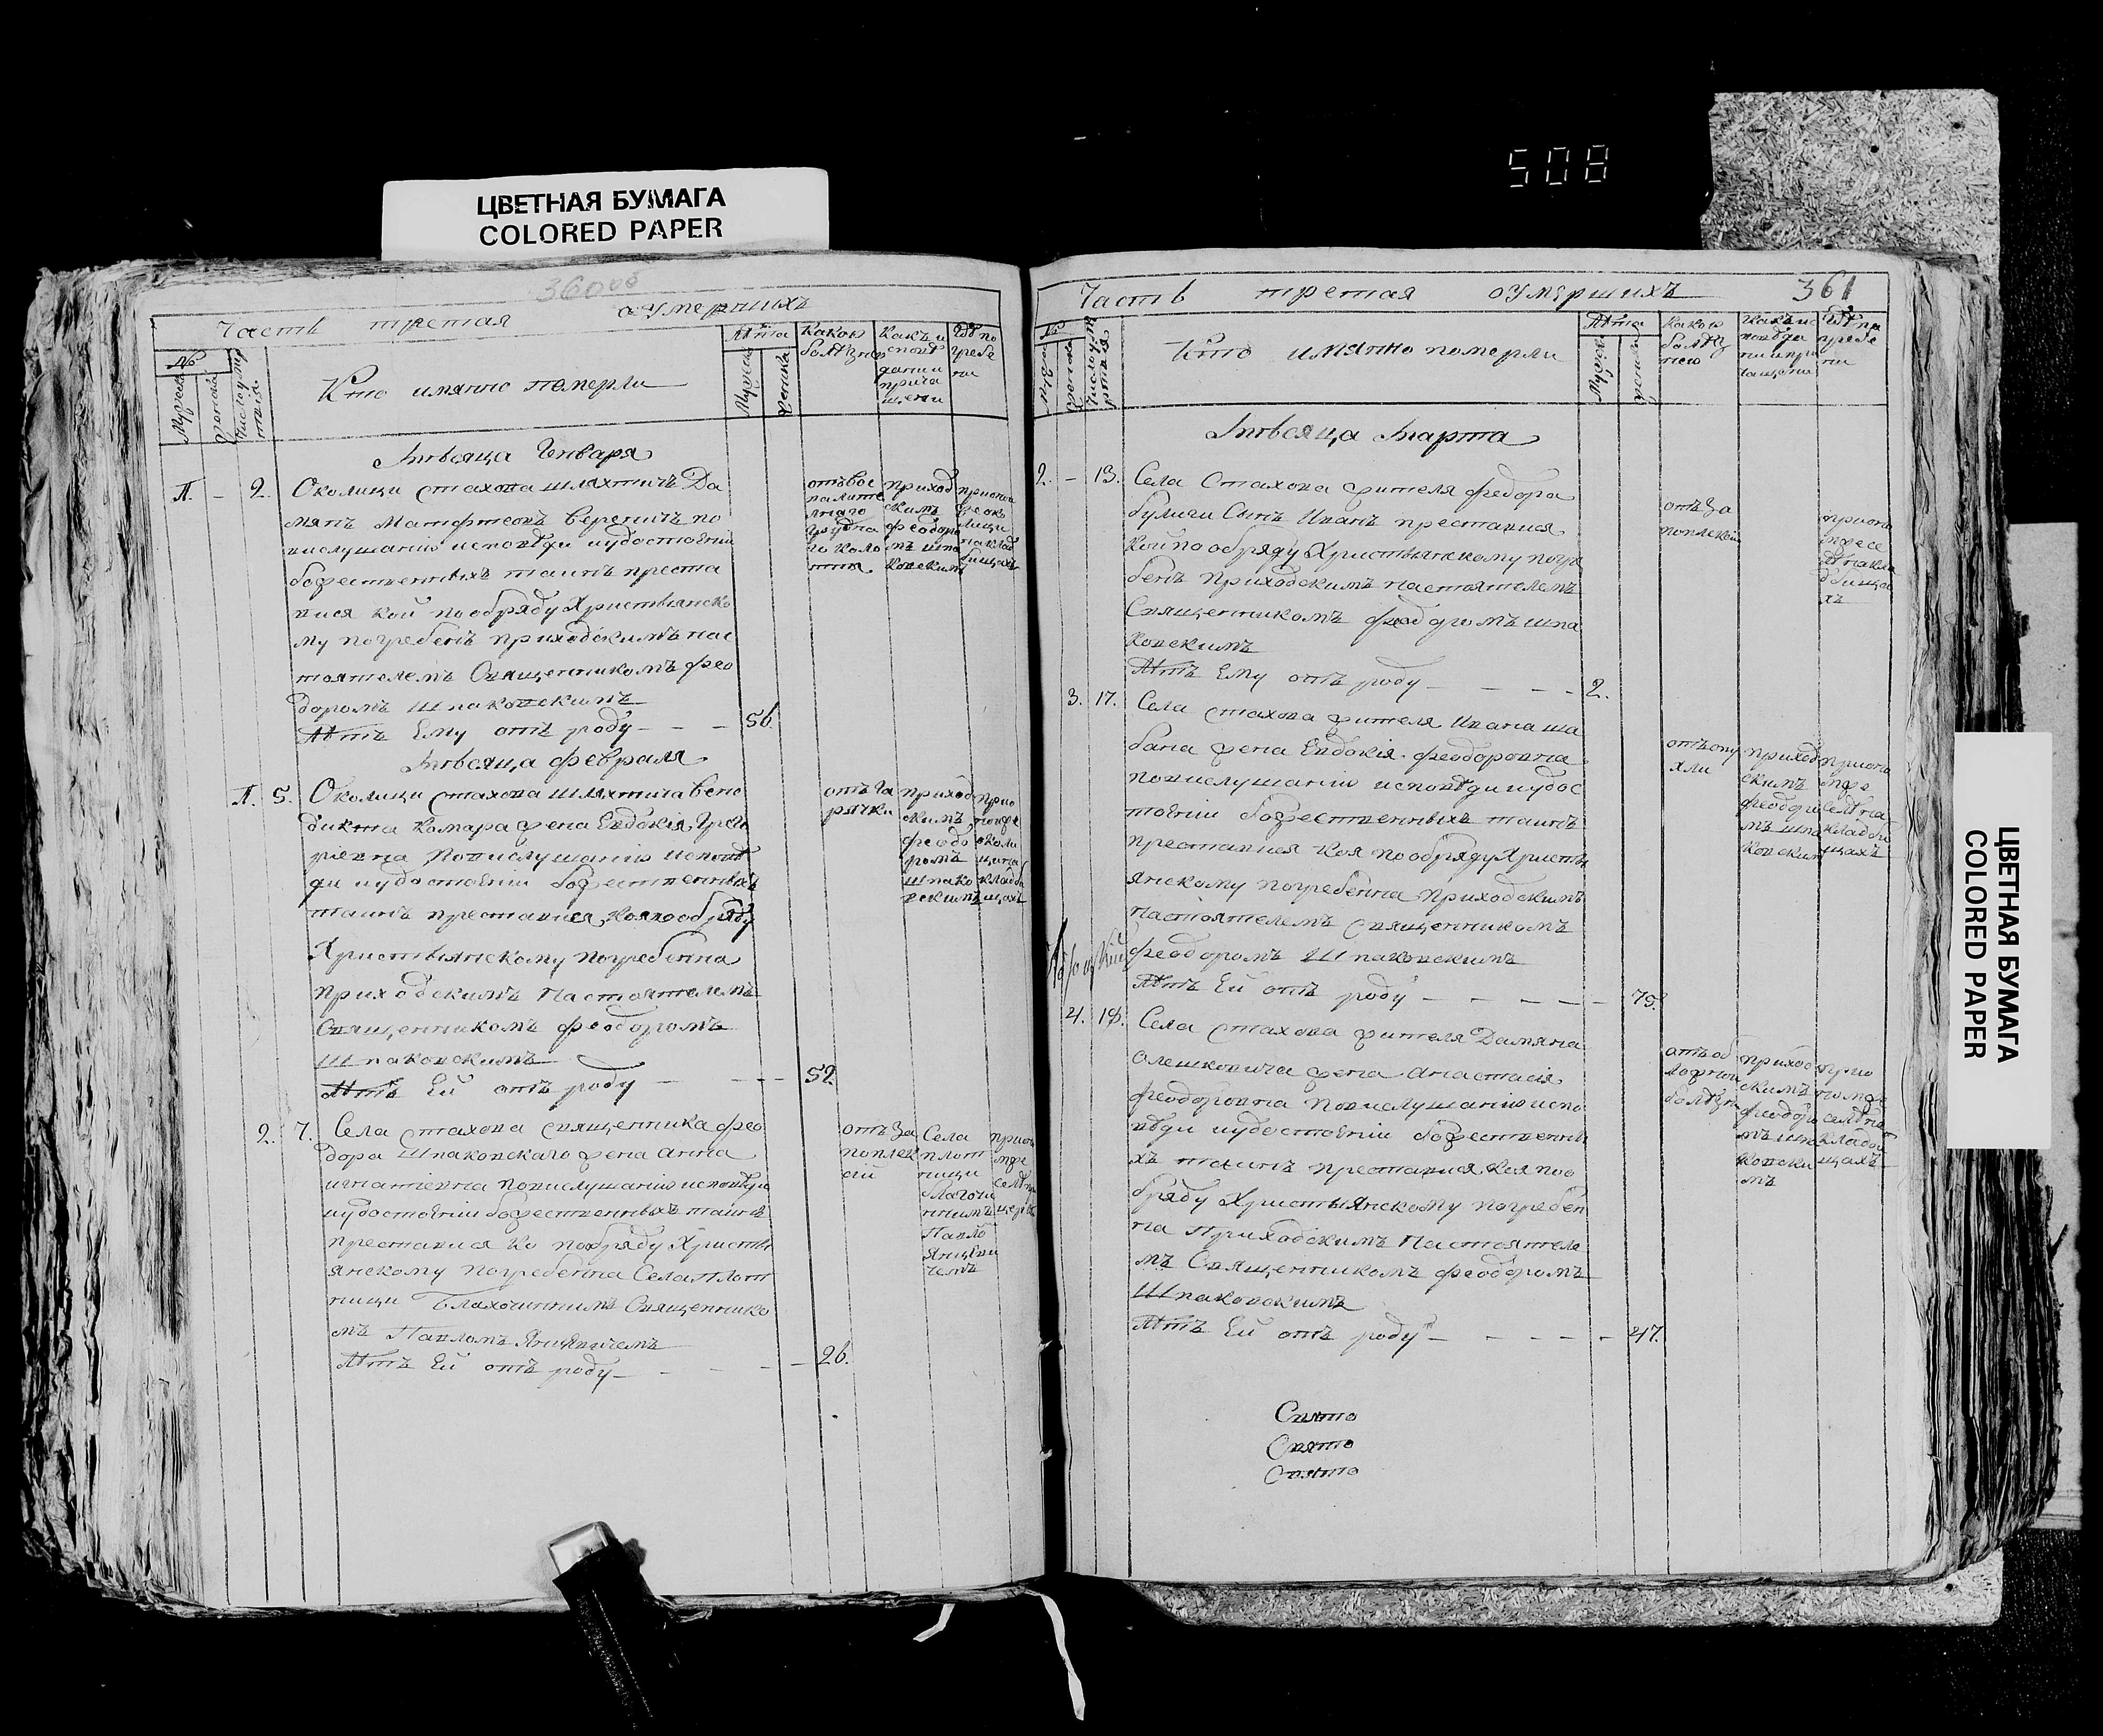 508
ЦВЕТНАЯ БУМАГА
COLORED PAPER
360об
Часть третая оумершихъ
№
Мужеска
Женска
Число умертвія
Кто имянно померли
Лѣта
Мужеска
Женска
Какою
болѣзнію
Какъ и
сповѣ
дани и
прича
щени
Гдѣ по
гребе
ни
Мѣсяца Генваря
1. – 2.
Околици Стахова шляхтичъ Да
мянъ Матфеовъ Вереничъ по
вислушанію исповѣди иудостоѣніи
божественныхъ таинъ преста
вися кой пообряду Христіянско
му погребенъ приходскимъ нас
тоятелемъ Священникомъ Фео
доромъ Шпаковскимъ
Лѣтъ Ему отъ роду – – – 56.
отъвос
палите
лнаго
приход
скимъ
феодоро
мъ шпа
ковскимъ
Мѣсяца февраля
1. 5.
Околици Стахова шляхтича Бене
дикта Комара жена Евдокія Григо
ріевна Повислушанію исповѣ
ди иудостоѣніи божественныхъ
таинъ преставися, коя пообряду
Христіянскому погребенна
приходскимъ Настоятелемъ
Священникомъ Феодоромъ
Шпаковскимъ
Лѣтъ Ей отъ роду – – – – 52.
отъ га
рячки
приход
скимъ
феодо
ромъ
шпако
вскимъ
2. 7.
Села Стахова Священника Фео
дора Шпаковскаго жена Анна
Игнатіевна повислушанію исповѣди
иудостоѣніи божественныхъ таинъ
преставися ко пообряду Христі
янскому погребенна Села Плот
ници Благочиннимъ Священнико
мъ Павломъ
Лѣтъ Ей отъ роду – – – – 26.
отъ за
поплек
сіи
Села
плот
ници
благочи
ннимъ
Павло
Часть третая оумершихъ
361
№
Кто имянно померли
Лѣта
Какою
болѣз
нею
Гдѣ по
гребе
ни
Мѣсяца Марта
2. – 13.
Села Стахова жителя Федора
булиги Синъ Иванъ преставися
кой по обряду Христіянскому погре
бенъ Приходскимъ Настоятелемъ
Священникомъ Феодоромъ Шпа
ковскимъ
Лѣтъ Ему отъ роду – – – – 2.
отъ за
поплексіи
3. 17.
Села Стахова жителя Ивана ша
бана жена Евдокія Феодоровна
повислушанію исповѣди иудос
тоѣніи божественныхъ таинъ
преставися коя пообряду Христі
янскому погребенна Приходскимъ
Настоятелемъ Священникомъ
Феодоромъ Шпаковскимъ
Лѣтъ Ей отъ роду – – – – – 75.
отъопу
хли
приход
скимъ
феодоро
мъ шпа
ковским
4. 18.
Села Стахова жителя Дамяна
Олешковича жена Анастасія
Феодоровна Повислушанію испо
вѣди иудостоѣніи божественны
хъ таинъ преставися коя поо
бряду Христіянскому погребен
на Приходскимъ Настоятеле
мъ Священникомъ Феодоромъ
Шпаковскимъ
Лѣтъ Ей отъ роду – – – – – 47.
приход
скимъ
феодоро
мъ шпа
ковски
мъ
Свято
Свято
Свято
ЦВЕТНАЯ БУМАГА
COLORED PAPER